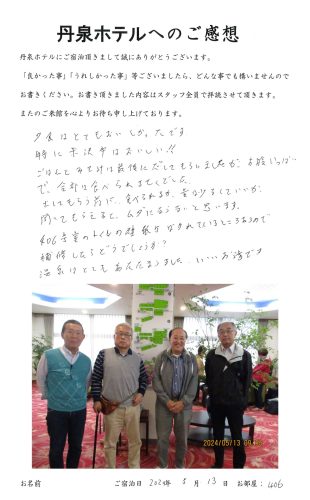 丹泉ホテルへのご感想
丹泉ホテルにご宿泊頂きまして誠にありがとうございます。
「良かった事」「うれしかった事」等ございましたら、どんな事でも構いませんので
お書きください。お書き頂きました内容はスタッフ全員で拝読させて頂きます。
またのご来館を心よりお待ち申し上げております。
夕食はとてもおいしかったです
特に米沢牛はおいしい!!
ごはんとみそ汁は最後にだしてもらいましたが、お腹いっぱい
で、全部は食べられませんでした
出してもらう前に、食べられるか、量が少なくていいか、
聞いてもらえると、ムダにならないと思います。
406号室のトイレの壁紙がはがれているところもあるので
補修したらどうでしょうか?
温泉はとてもあたたまりました。いいお湯です
2024/05/13
お名前 ご宿泊日 2024年 5月 13日 お部屋: 406